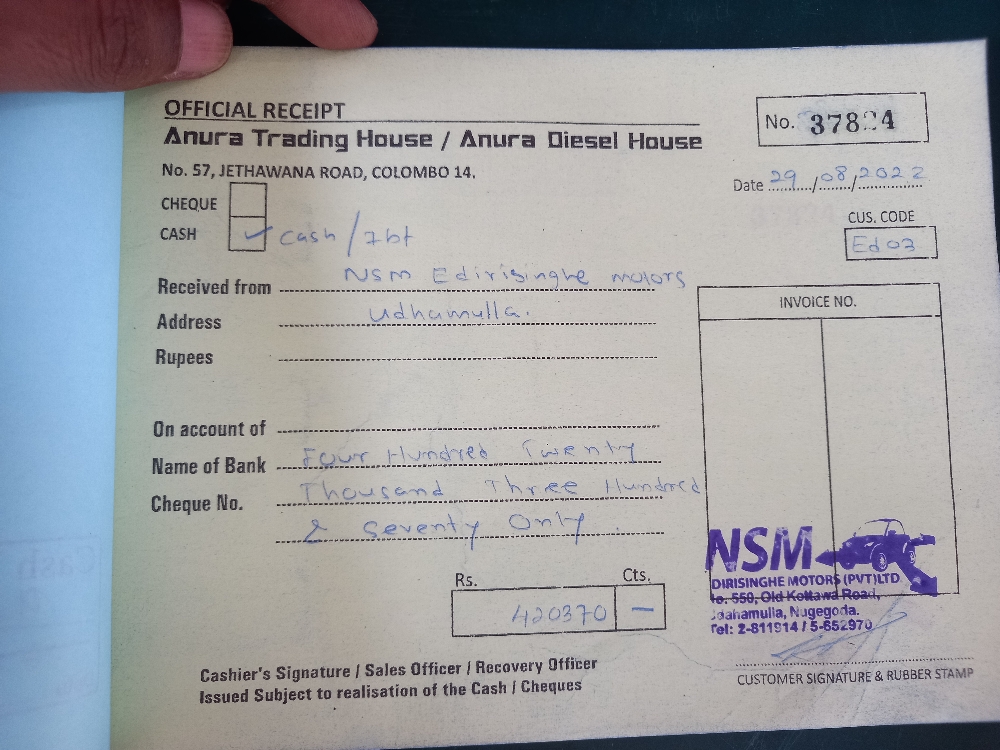 OFFICIAL RECEIPT
Anura Trading House / Anura Diesel House
No. 57, JETHAWANA ROAD, COLOMBO 14.
No. 37824
Date 29/08/2022
CHEQUE
CASH ✓ Cash /
CUS. CODE
Ed 03
Received from NSM Edirisinghe motors
Address Udhamulla.
Rupees
INVOICE NO.
On account of
Name of Bank Four Hundred Twenty
Cheque No. Thousand Three Hundred
& Seventy Only
Rs. Cts.
420370 —
NSM
DIRISINGHE MOTORS (PVT) LTD
No. 550, Old Kottawa Road,
Udahamulla, Nugegoda.
Tel: 2-811914 / 5-652970
Cashier's Signature / Sales Officer / Recovery Officer
Issued Subject to realisation of the Cash / Cheques
CUSTOMER SIGNATURE & RUBBER STAMP